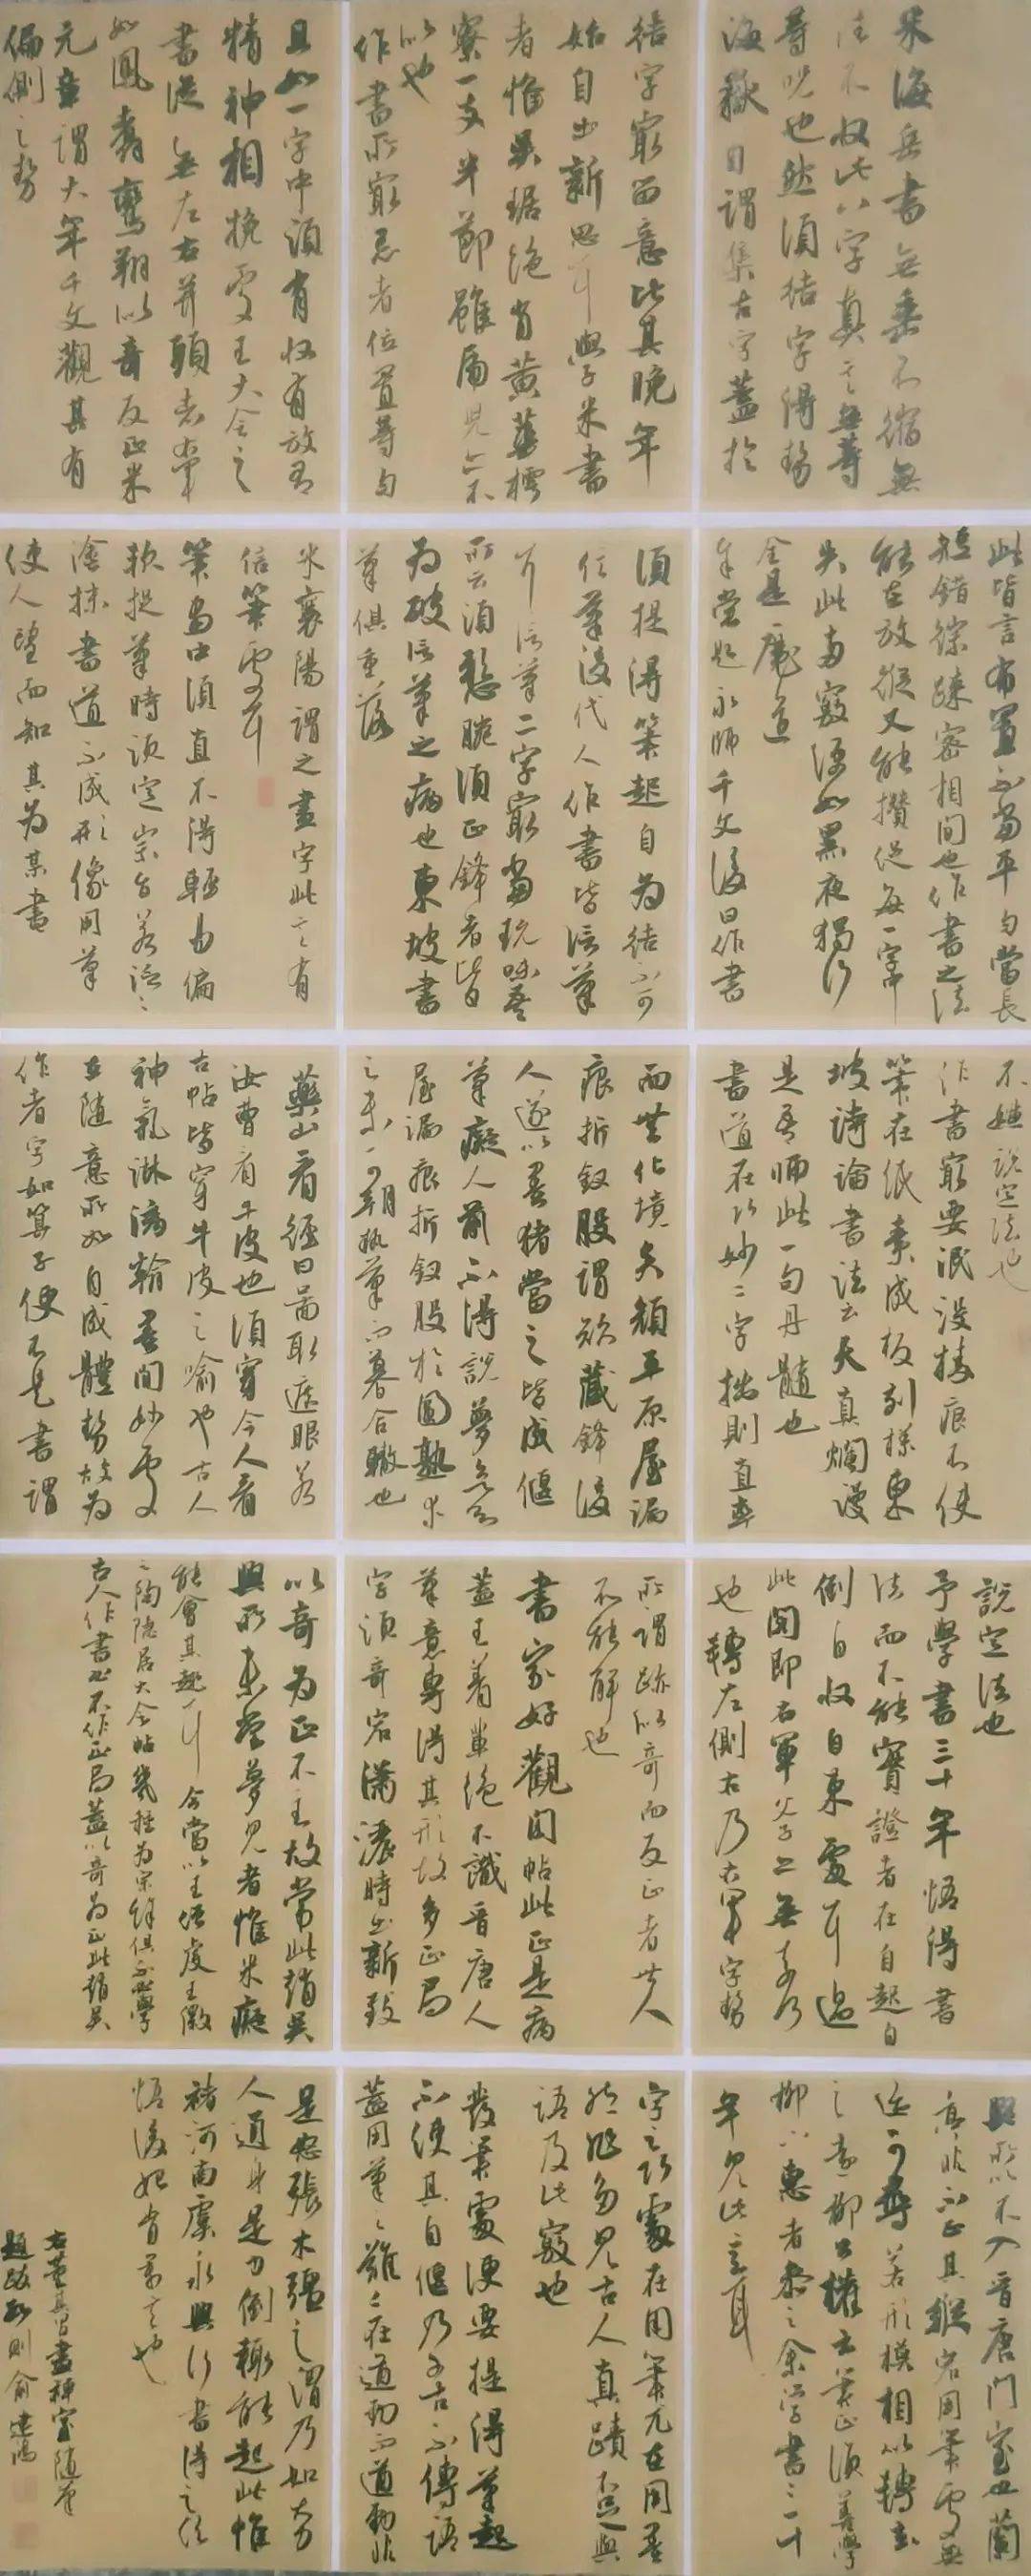 米海岳書無垂不縮無
往不收此八字真言無等
等呪也然須結字得勢
海嶽自謂集古字蓋於
結字最留意比其晚年
始自出新思耳學米書
者惟吳琚絕肖黃華樗
寮一支半節雖虎兒亦不
似也
作書所最忌者位置等勻
且如一字中須有收有放有
精神相挽處王大令之
書從無左右並頭者右軍
如鳳翥鸞翔似奇反正米
元章謂大年千文觀其有
偏側之勢
此皆言布置不當平勻當長
短錯綜疎密相間也作書之法
能在放縱又能攢促每一字中
失此兩竅便如黑夜獨行
全是魔道
予嘗題永師千文後曰作書
須提得筆起自為結不可
信筆後代人作書皆信筆
耳信筆二字最當玩味吾
所云須懸腕須正鋒者皆
為破信筆之病也東坡書
筆俱重落
米襄陽謂之畫字此言有
信筆處耳
筆畫中須直不得輕易偏
軟捉筆時須定宗旨若泛泛
塗抹書道不成形像用筆
使人望而知其為某書
不嫌說定法也
作書最要泯沒棱痕不使
筆在紙素成板刻樣東
坡詩論書法云天真爛漫
是吾師此一句丹髓也
書道在巧妙二字拙則直率
而無化境矣顏平原屋漏
痕折釵股謂欲藏鋒後
人遂以墨豬當之皆成偃
筆癡人前不得說夢欲知
屋漏痕折釵股於圓熟求
之未可朝執筆而暮合轍也
藥山看經曰圖取遮眼若
汝曹看牛皮也須穿今人看
古帖皆穿牛皮之喻也古人
神氣淋漓翰墨間妙處
在隨意所如自成體勢故為
作者字如算子便不是書謂
說定法也
予學書三十年悟得書
法而不能實證者在自起自
倒自收自束處耳過
此關即右軍父子亦無奈何
也轉左側右乃右軍字勢
所謂跡似奇而反正者世人
不能解也
書家好觀閣帖此正是病
蓋王著輩絕不識晉唐人
筆意專得其形故多正局
字須奇宕瀟灑時出新致
以奇為正不主故常此趙吳
興所未嘗夢見者惟米癡
能會其趣耳今當以王僧虔王徽
之陶隱居大令帖幾種為宗餘俱不必學
古人作書必不作正局蓋以奇為正此趙吳
興所以不入晉唐門室也蘭
亭非不正其縱宕用筆處無
迹可尋若形模相似轉去
之遠柳公權云筆正須善學
柳下惠者參之余學書三十
年見此意耳
字之巧處在用筆尤在用墨
然非多見古人真蹟不足與
語及此竅也
發筆處便要提得筆起
不使其自偃乃千古不傳語
蓋用筆之難難在遒勁而遒勁非
是怒張木強之謂乃如大力
人通身是力倒輒能起此惟
褚河南虞永興行書得之須
悟後始肯余言也
右董其昌畫禪室隨筆
題跋數則俞建